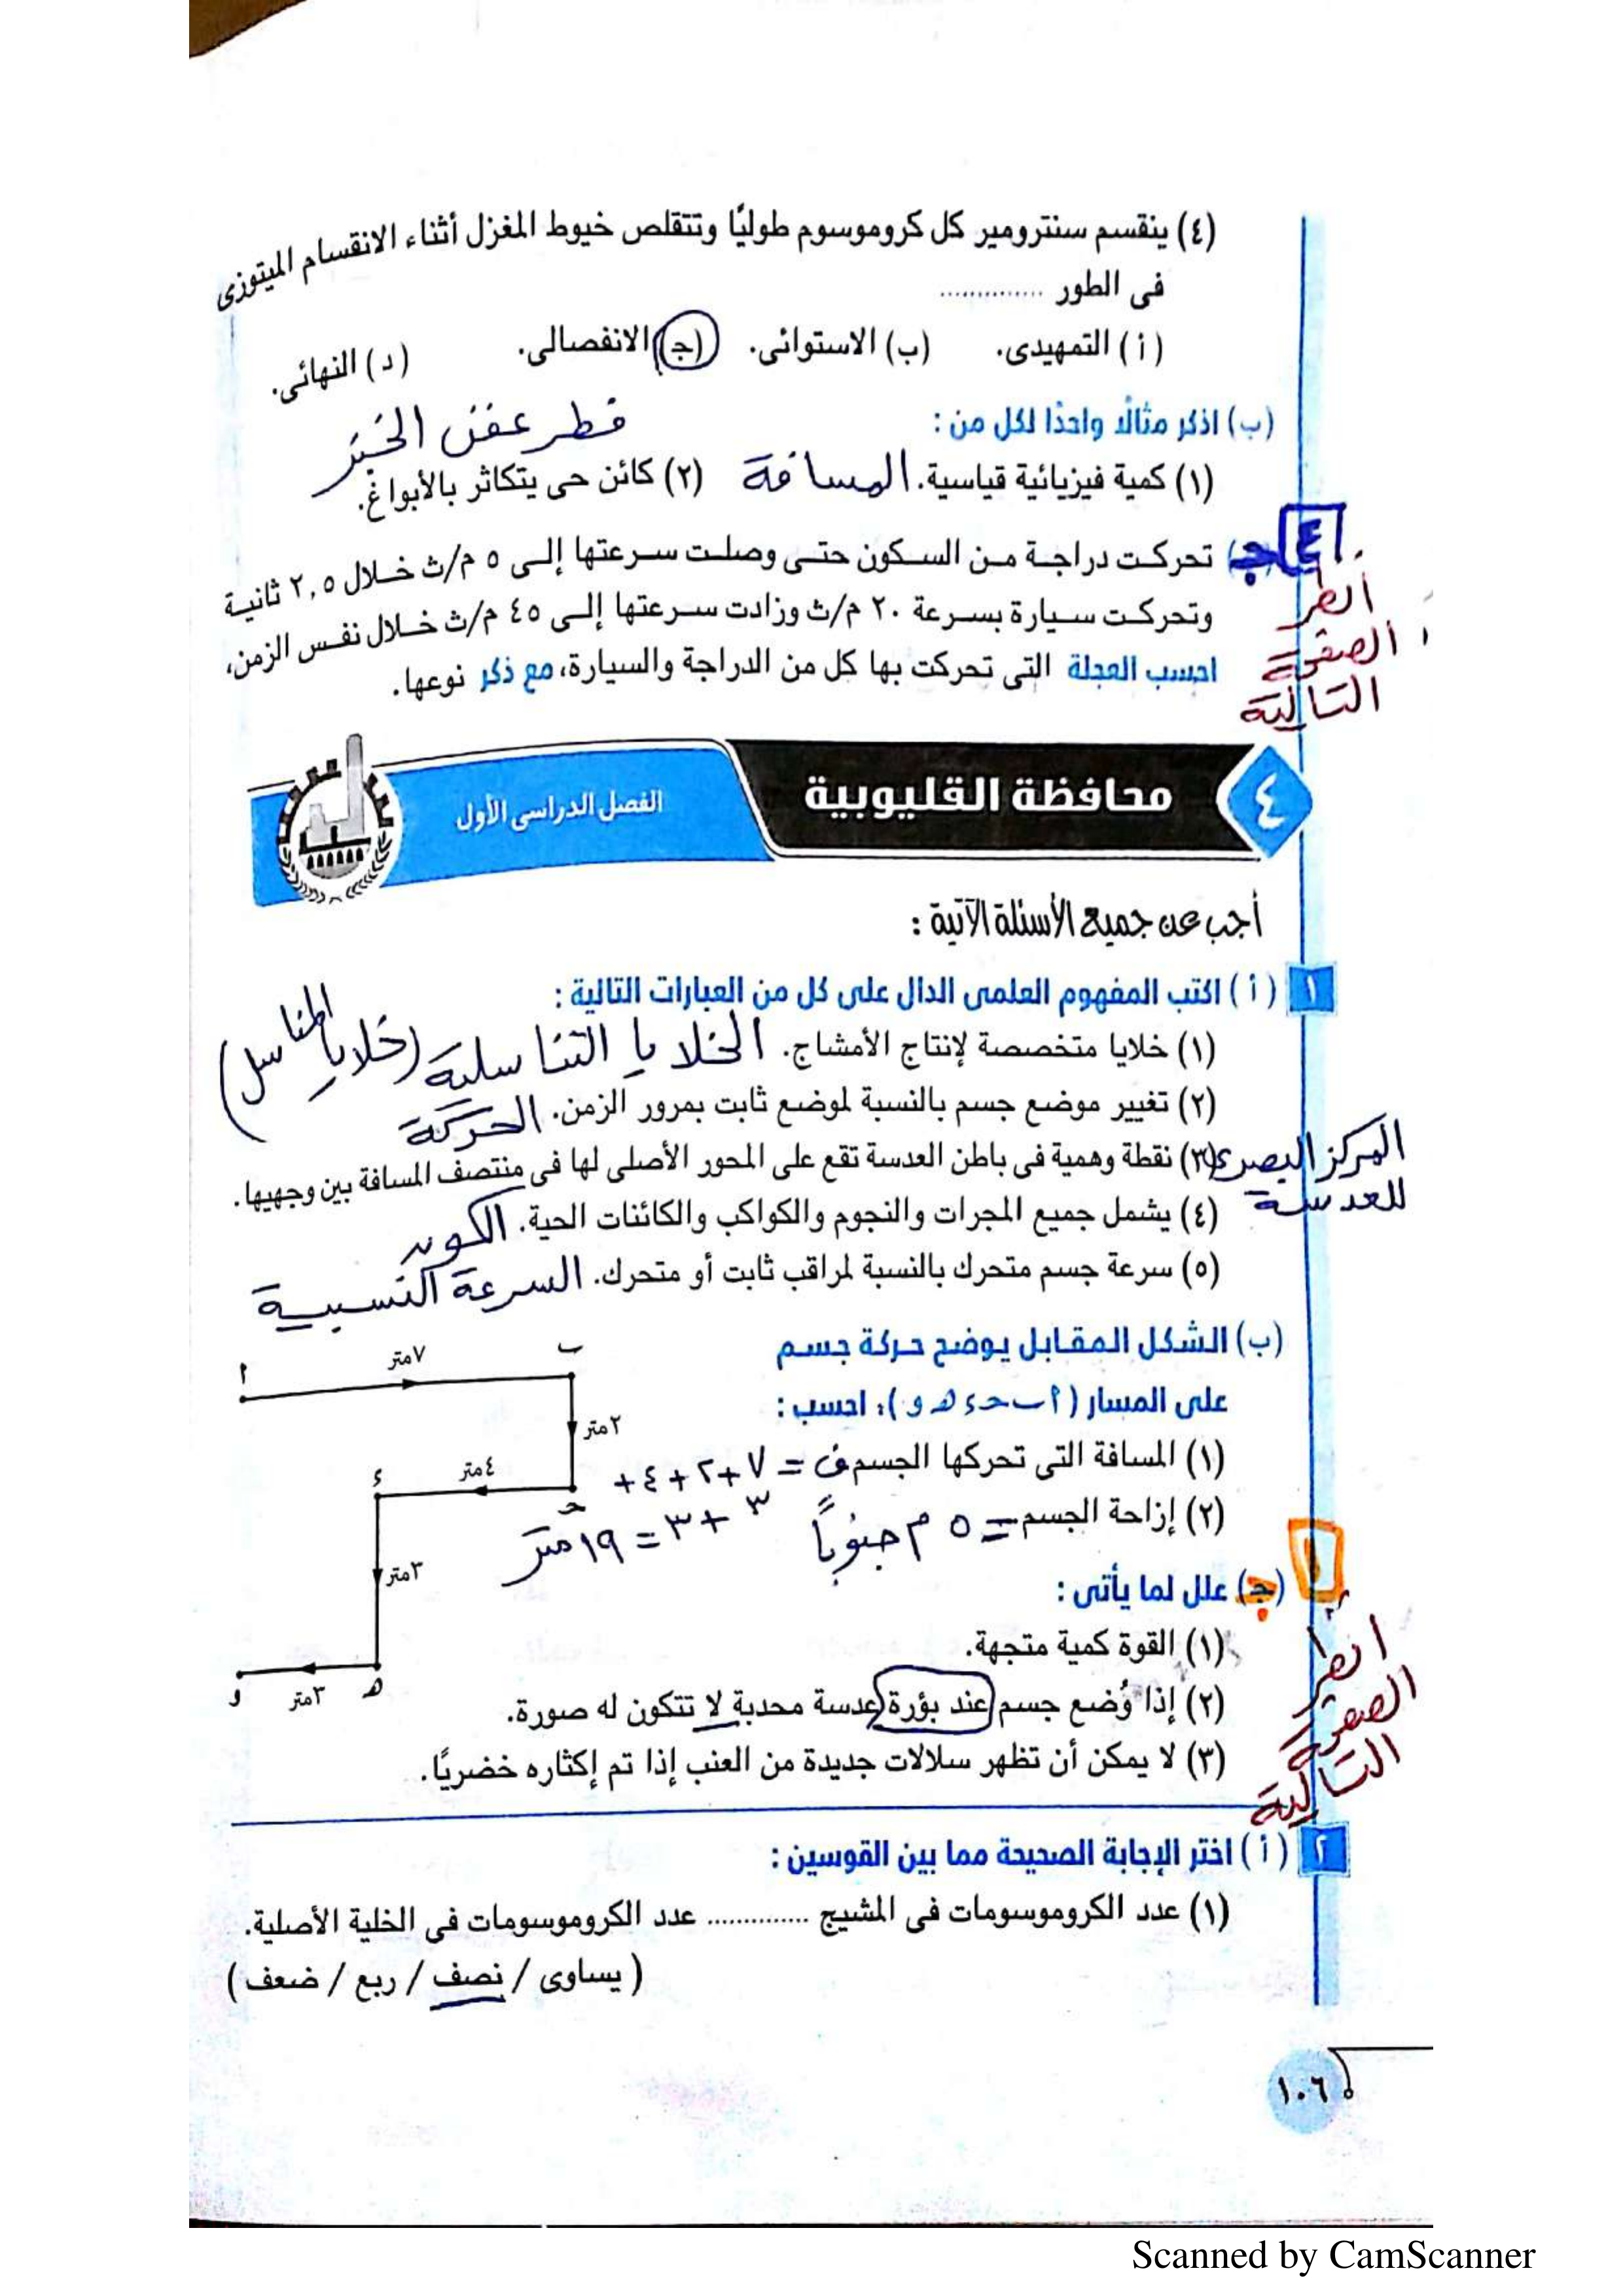 (٤) ينقسم سنترومير كل كروموسوم طوليًا وتتقلص خيوط المغزل أثناء الانقسام الميتوزى
فى الطور ..............
(أ) التمهيدى. (ب) الاستوائى. (ج) الانفصالى. (د) النهائى.
(ب) اذكر مثالًا واحدًا لكل من :
فطر عفن الخبز
(١) كمية فيزيائية قياسية. المسافة (٢) كائن حى يتكاثر بالأبواغ.
٤ (ج) تحركت دراجة من السكون حتى وصلت سرعتها إلى ٥ م/ث خلال ٢,٥ ثانية
وتحركت سيارة بسرعة ٢٠ م/ث وزادت سرعتها إلى ٤٥ م/ث خلال نفس الزمن،
احسب العجلة التى تحركت بها كل من الدراجة والسيارة، مع ذكر نوعها.
أنظر
الصفحة
التالية
٤ محافظة القليوبية الفصل الدراسى الأول
أجب عن جميع الأسئلة الآتية :
١ (أ) اكتب المفهوم العلمى الدال على كل من العبارات التالية :
(١) خلايا متخصصة لإنتاج الأمشاج. الخلايا التناسلية (خلايا المناسل)
(٢) تغيير موضع جسم بالنسبة لموضع ثابت بمرور الزمن. الحركة
(٣) نقطة وهمية فى باطن العدسة تقع على المحور الأصلى لها فى منتصف المسافة بين وجهيها.
المركز البصرى
للعدسة
(٤) يشمل جميع المجرات والنجوم والكواكب والكائنات الحية. الكون
(٥) سرعة جسم متحرك بالنسبة لمراقب ثابت أو متحرك. السرعة النسبية
(ب) الشكل المقابل يوضح حركة جسم
على المسار (أ ب ح ء ه و)، احسب :
(١) المسافة التى تحركها الجسم ف = ٧+٢+٤+
٣+٣ = ١٩ متر
(٢) إزاحة الجسم = ٥ م جنوبًا
أ
٧متر
ب
٢متر
ح
٤متر
ء
٣متر
ه
٣متر
و
١ (ج) علل لما يأتى :
(١) القوة كمية متجهة.
(٢) إذا وُضع جسم عند بؤرة عدسة محدبة لا تتكون له صورة.
(٣) لا يمكن أن تظهر سلالات جديدة من العنب إذا تم إكثاره خضريًا.
انظر
الصفحة
التالية
٢ (أ) اختر الإجابة الصحيحة مما بين القوسين :
(١) عدد الكروموسومات فى المشيج .............. عدد الكروموسومات فى الخلية الأصلية.
(يساوى / نصف / ربع / ضعف)
١٠٦
Scanned by CamScanner